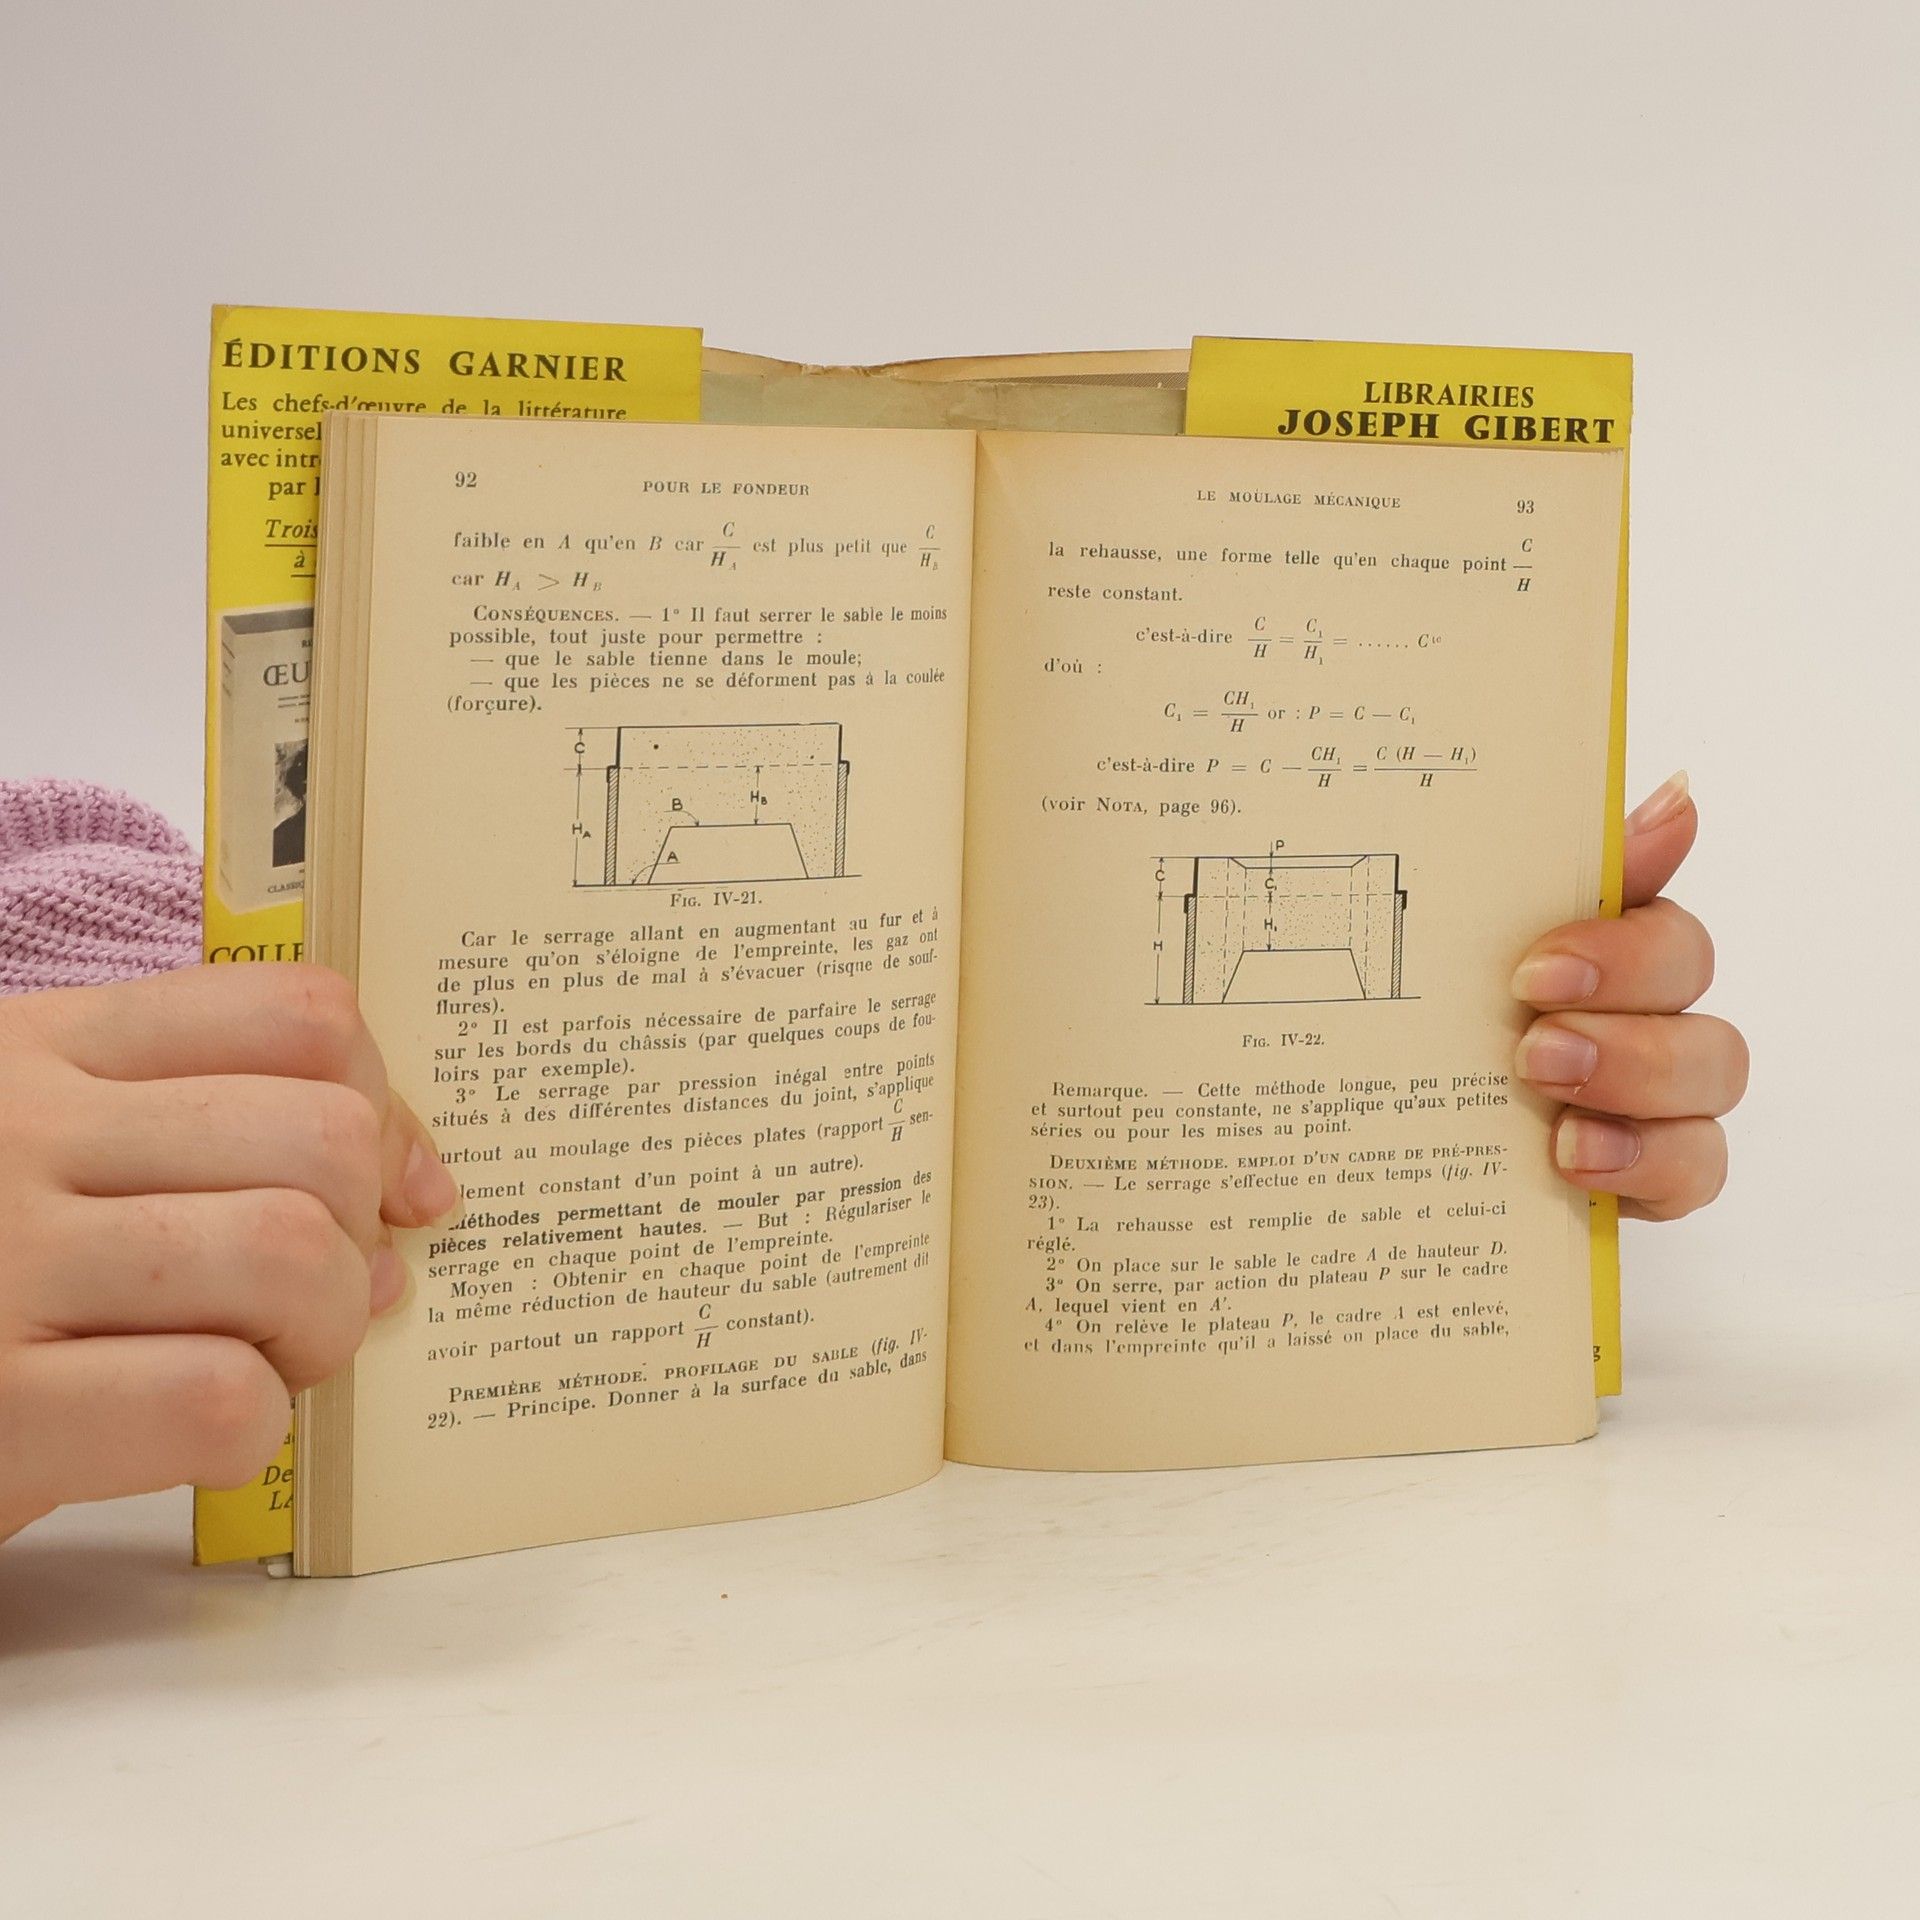 ÉDITIONS GARNIER
Les chefs-d'œuvre de la littérature
universel
avec intr
par
Trois
à
ŒU
COLLE
De
LA
LIBRAIRIES
JOSEPH GIBERT
92 POUR LE FONDEUR
faible en A qu'en B car C/H_A est plus petit que C/H_B
car H_A > H_B
CONSÉQUENCES. — 1° Il faut serrer le sable le moins
possible, tout juste pour permettre :
— que le sable tienne dans le moule;
— que les pièces ne se déforment pas à la coulée
(forçure).
C
H_A
B
H_B
A
FIG. IV-21.
Car le serrage allant en augmentant au fur et à
mesure qu'on s'éloigne de l'empreinte, les gaz ont
de plus en plus de mal à s'évacuer (risque de souf-
flures).
2° Il est parfois nécessaire de parfaire le serrage
sur les bords du châssis (par quelques coups de fou-
loirs par exemple).
3° Le serrage par pression inégal entre points
situés à des différentes distances du joint, s'applique
urtout au moulage des pièces plates (rapport C/H sen-
lement constant d'un point à un autre).
éthodes permettant de mouler par pression des
pièces relativement hautes. — But : Régulariser le
serrage en chaque point de l'empreinte.
Moyen : Obtenir en chaque point de l'empreinte
la même réduction de hauteur du sable (autrement dit
avoir partout un rapport C/H constant).
PREMIÈRE MÉTHODE. PROFILAGE DU SABLE (fig. IV-
22). — Principe. Donner à la surface du sable, dans
LE MOULAGE MÉCANIQUE 93
la rehausse, une forme telle qu'en chaque point C/H
reste constant.
c'est-à-dire C/H = C₁/H₁ = ...... C^te
d'où :
C₁ = CH₁/H or : P = C — C₁
c'est-à-dire P = C — CH₁/H = C (H — H₁)/H
(voir NOTA, page 96).
P
C
C₁
H
H₁
FIG. IV-22.
Remarque. — Cette méthode longue, peu précise
et surtout peu constante, ne s'applique qu'aux petites
séries ou pour les mises au point.
DEUXIÈME MÉTHODE. EMPLOI D'UN CADRE DE PRÉ-PRES-
SION. — Le serrage s'effectue en deux temps (fig. IV-
23).
1° La rehausse est remplie de sable et celui-ci
réglé.
2° On place sur le sable le cadre A de hauteur D.
3° On serre, par action du plateau P sur le cadre
A, lequel vient en A'.
4° On relève le plateau P, le cadre A est enlevé,
et dans l'empreinte qu'il a laissé on place du sable,